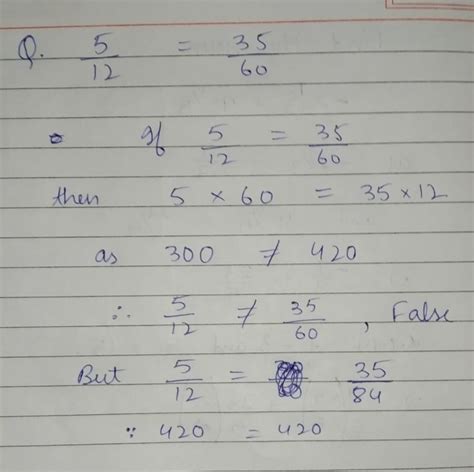 Q. 5/12 = 35/60
If 5/12 = 35/60
then 5 × 60 = 35 × 12
as 300 ≠ 420
∴ 5/12 ≠ 35/60, False
But 5/12 = 35/84
∵ 420 = 420